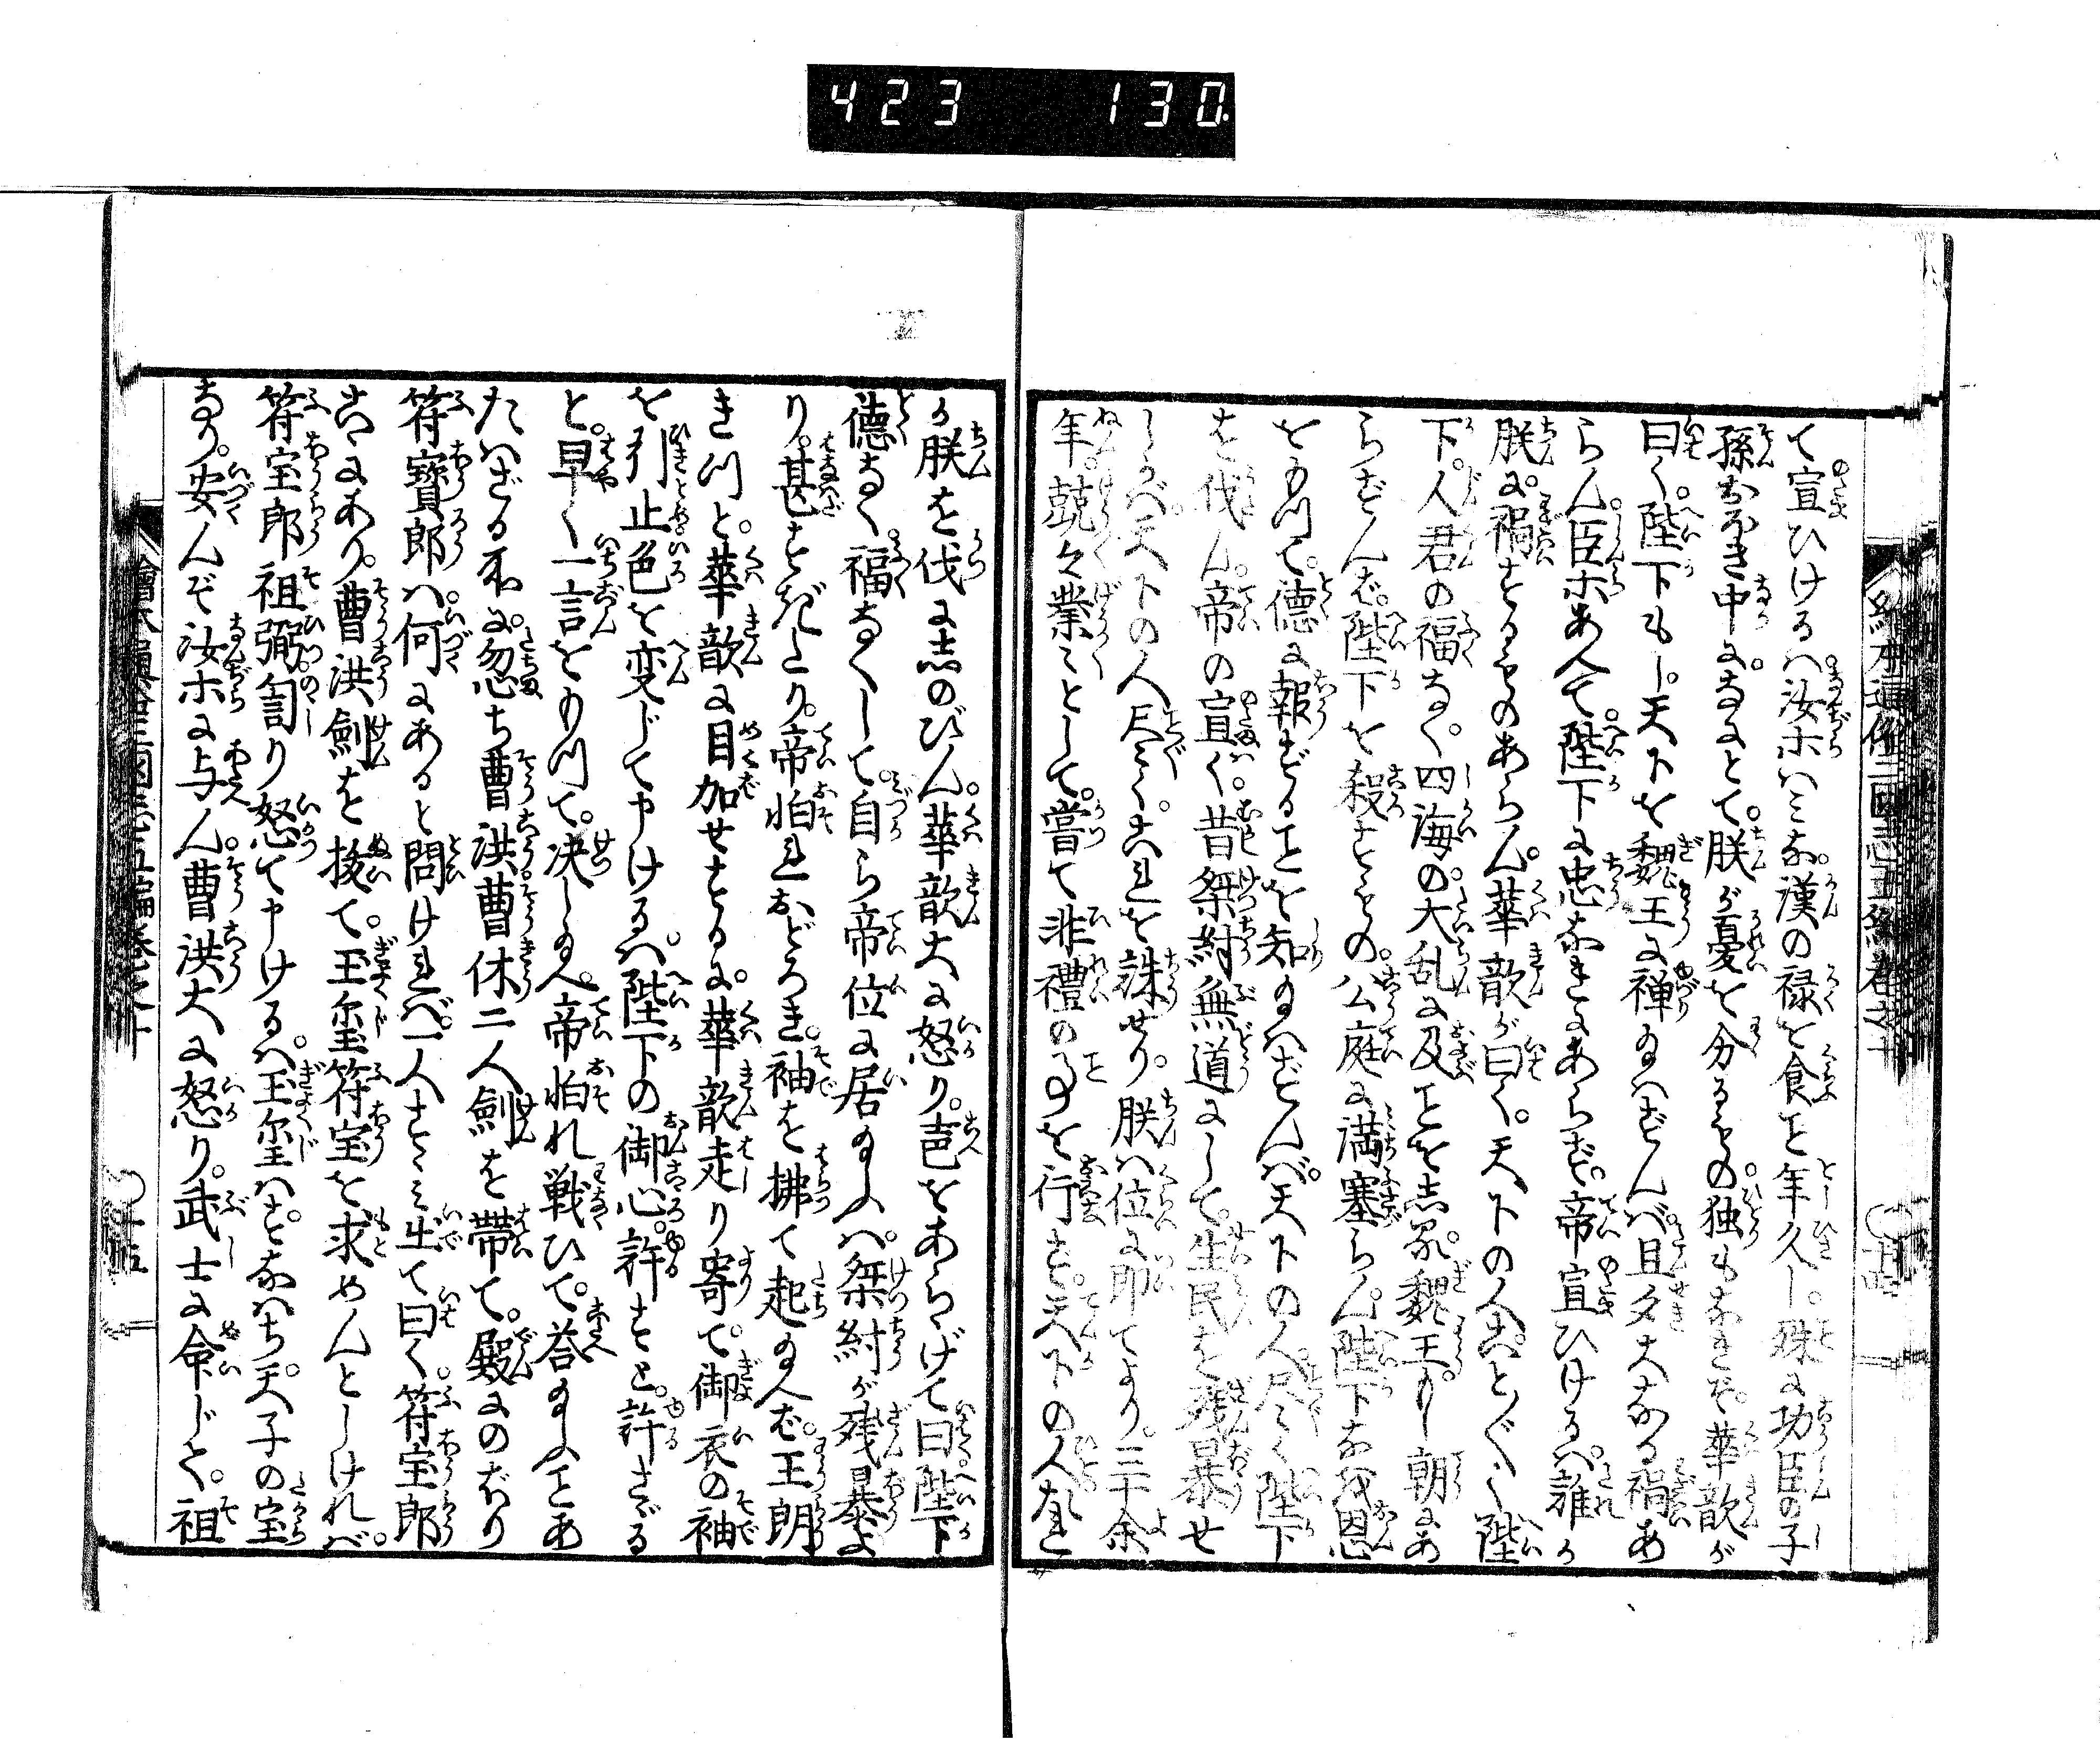 423 130
繪本通俗三國志五編卷之十
て宣ひけるハ汝ホハミな漢の禄を食こと年久し殊に功臣の子
孫おほき中になにとて朕が憂を分るもの独もなきぞ華歆が
曰く陛下もし天下を魏王に禅り玉ハずんバ且夕大なる禍あ
らん臣ホあへて陛下に忠なきにあらず帝宣ひけるハ誰か
朕に禍するものあらん華歆が曰く天下の人ことぐく陛
下人君の福なく四海の大乱に及ことを志る魏王もし朝にあ
らずんバ陛下を殺すもの公庭に満塞らん陛下なを恩
をもつて德に報ずることを知玉ハずんバ天下の人尽く陛下
を伐ん帝の宣く昔桀紂無道にして生民を残暴せ
しかバ天下の人尽くこれを誅せり朕ハ位に即てより三十余
年兢々業々として嘗て非禮の事を行ず天下の人たれ
か朕を伐に志のびん華歆大に怒り声をあらゝげて曰陛下
德なく福なくして自ら帝位に居玉ふハ桀紂が残暴よ
り甚はなはだしとり帝怕れおどろき袖を拂て起玉へバ王朗
きつと華歆に目加せするに華歆走り寄て御衣の袖
を引止色を変じて申けるハ陛下の御心許すと許さゞる
と早く一言をもつて决し玉へ帝怕れ戦ひて荅玉ふことあ
たハざる所に忽ち曹洪曹休二人劍を帶て殿にのぼり
符寳郎ハ何にあると問けれバ一人すゝミ出て曰く符宝郎
こゝにあり曹洪劍を拔て玉璽符宝を求めんとしけれバ
符宝郎祖弼訇り怒て申けるハ玉璽ハすなハち天子の宝
なり安んぞ汝ホに与へん曹洪大に怒り武士に命じて祖
繪本通俗三國志五編卷之十